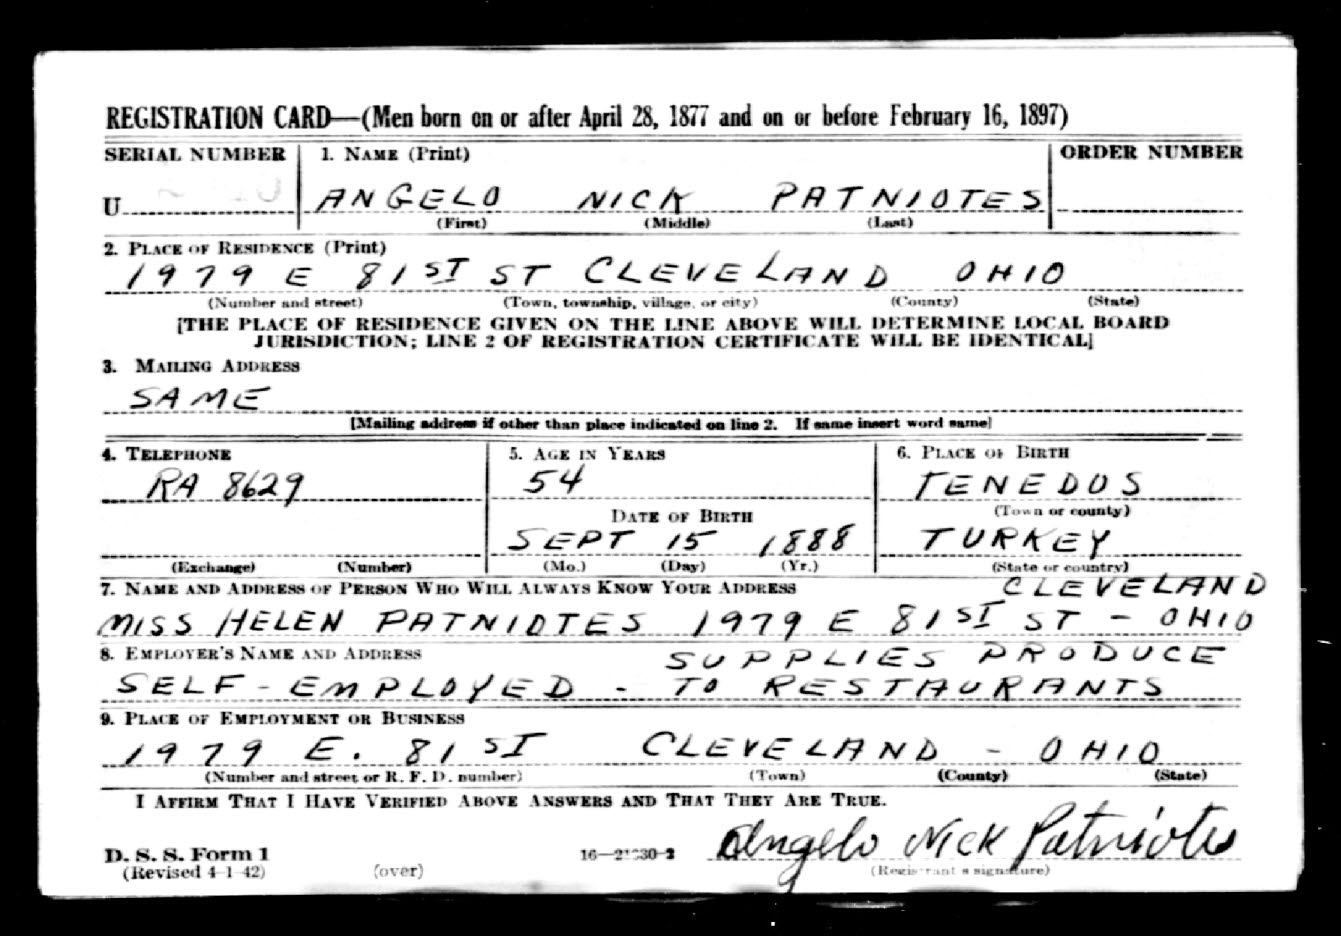 REGISTRATION CARD—(Men born on or after April 28, 1877 and on or before February 16, 1897)
SERIAL NUMBER 1. NAME (Print) ORDER NUMBER
U ANGELO NICK PATNIOTES
(First) (Middle) (Last)
2. PLACE OF RESIDENCE (Print)
1979 E 81ST ST CLEVELAND OHIO
(Number and street) (Town, township, village, or city) (County) (State)
[THE PLACE OF RESIDENCE GIVEN ON THE LINE ABOVE WILL DETERMINE LOCAL BOARD
JURISDICTION; LINE 2 OF REGISTRATION CERTIFICATE WILL BE IDENTICAL]
3. MAILING ADDRESS
SAME
[Mailing address if other than place indicated on line 2. If same insert word same]
4. TELEPHONE 5. AGE IN YEARS 6. PLACE OF BIRTH
RA 8629 54 TENEDOS
DATE OF BIRTH (Town or county)
SEPT 15 1888 TURKEY
(Exchange) (Number) (Mo.) (Day) (Yr.) (State or country)
7. NAME AND ADDRESS OF PERSON WHO WILL ALWAYS KNOW YOUR ADDRESS CLEVELAND
MISS HELEN PATNIOTES 1979 E 81ST ST - OHIO
8. EMPLOYER'S NAME AND ADDRESS SUPPLIES PRODUCE
SELF-EMPLOYED - TO RESTAURANTS
9. PLACE OF EMPLOYMENT OR BUSINESS
1979 E. 81ST CLEVELAND - OHIO
(Number and street or R. F. D. number) (Town) (County) (State)
I AFFIRM THAT I HAVE VERIFIED ABOVE ANSWERS AND THAT THEY ARE TRUE.
Angelo Nick Patniotes
D. S. S. Form 1
(Revised 4-1-42) (over) (Registrant's signature)